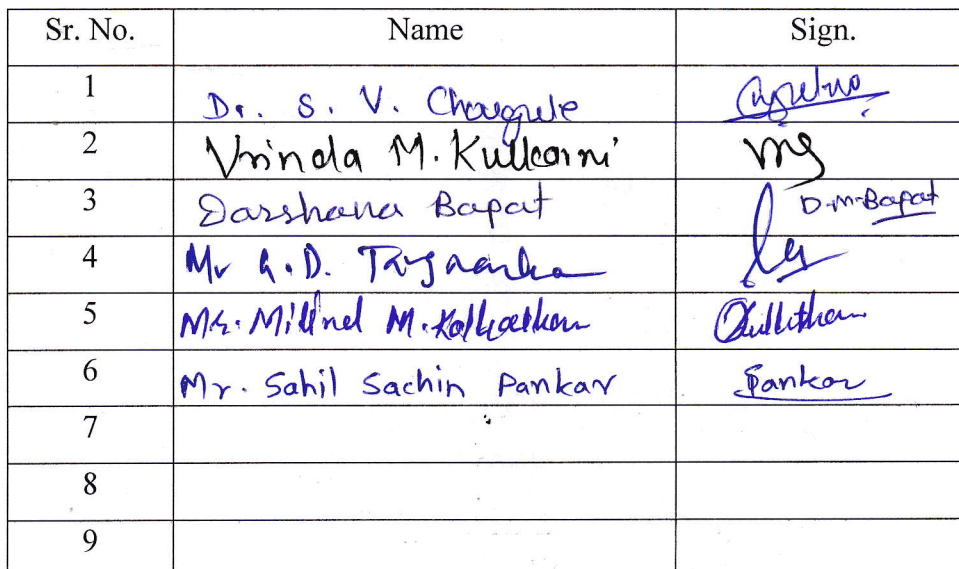 Sr. No. Name Sign.
1 Dr. S. V. Chougule
2 Vrinda M. Kulkarni
3 Darshana Bapat D.M.Bapat
4 Mr G.D.
5 Mr. Milind M.
6 Mr. Sahil Sachin Pankar Pankar
7
8
9